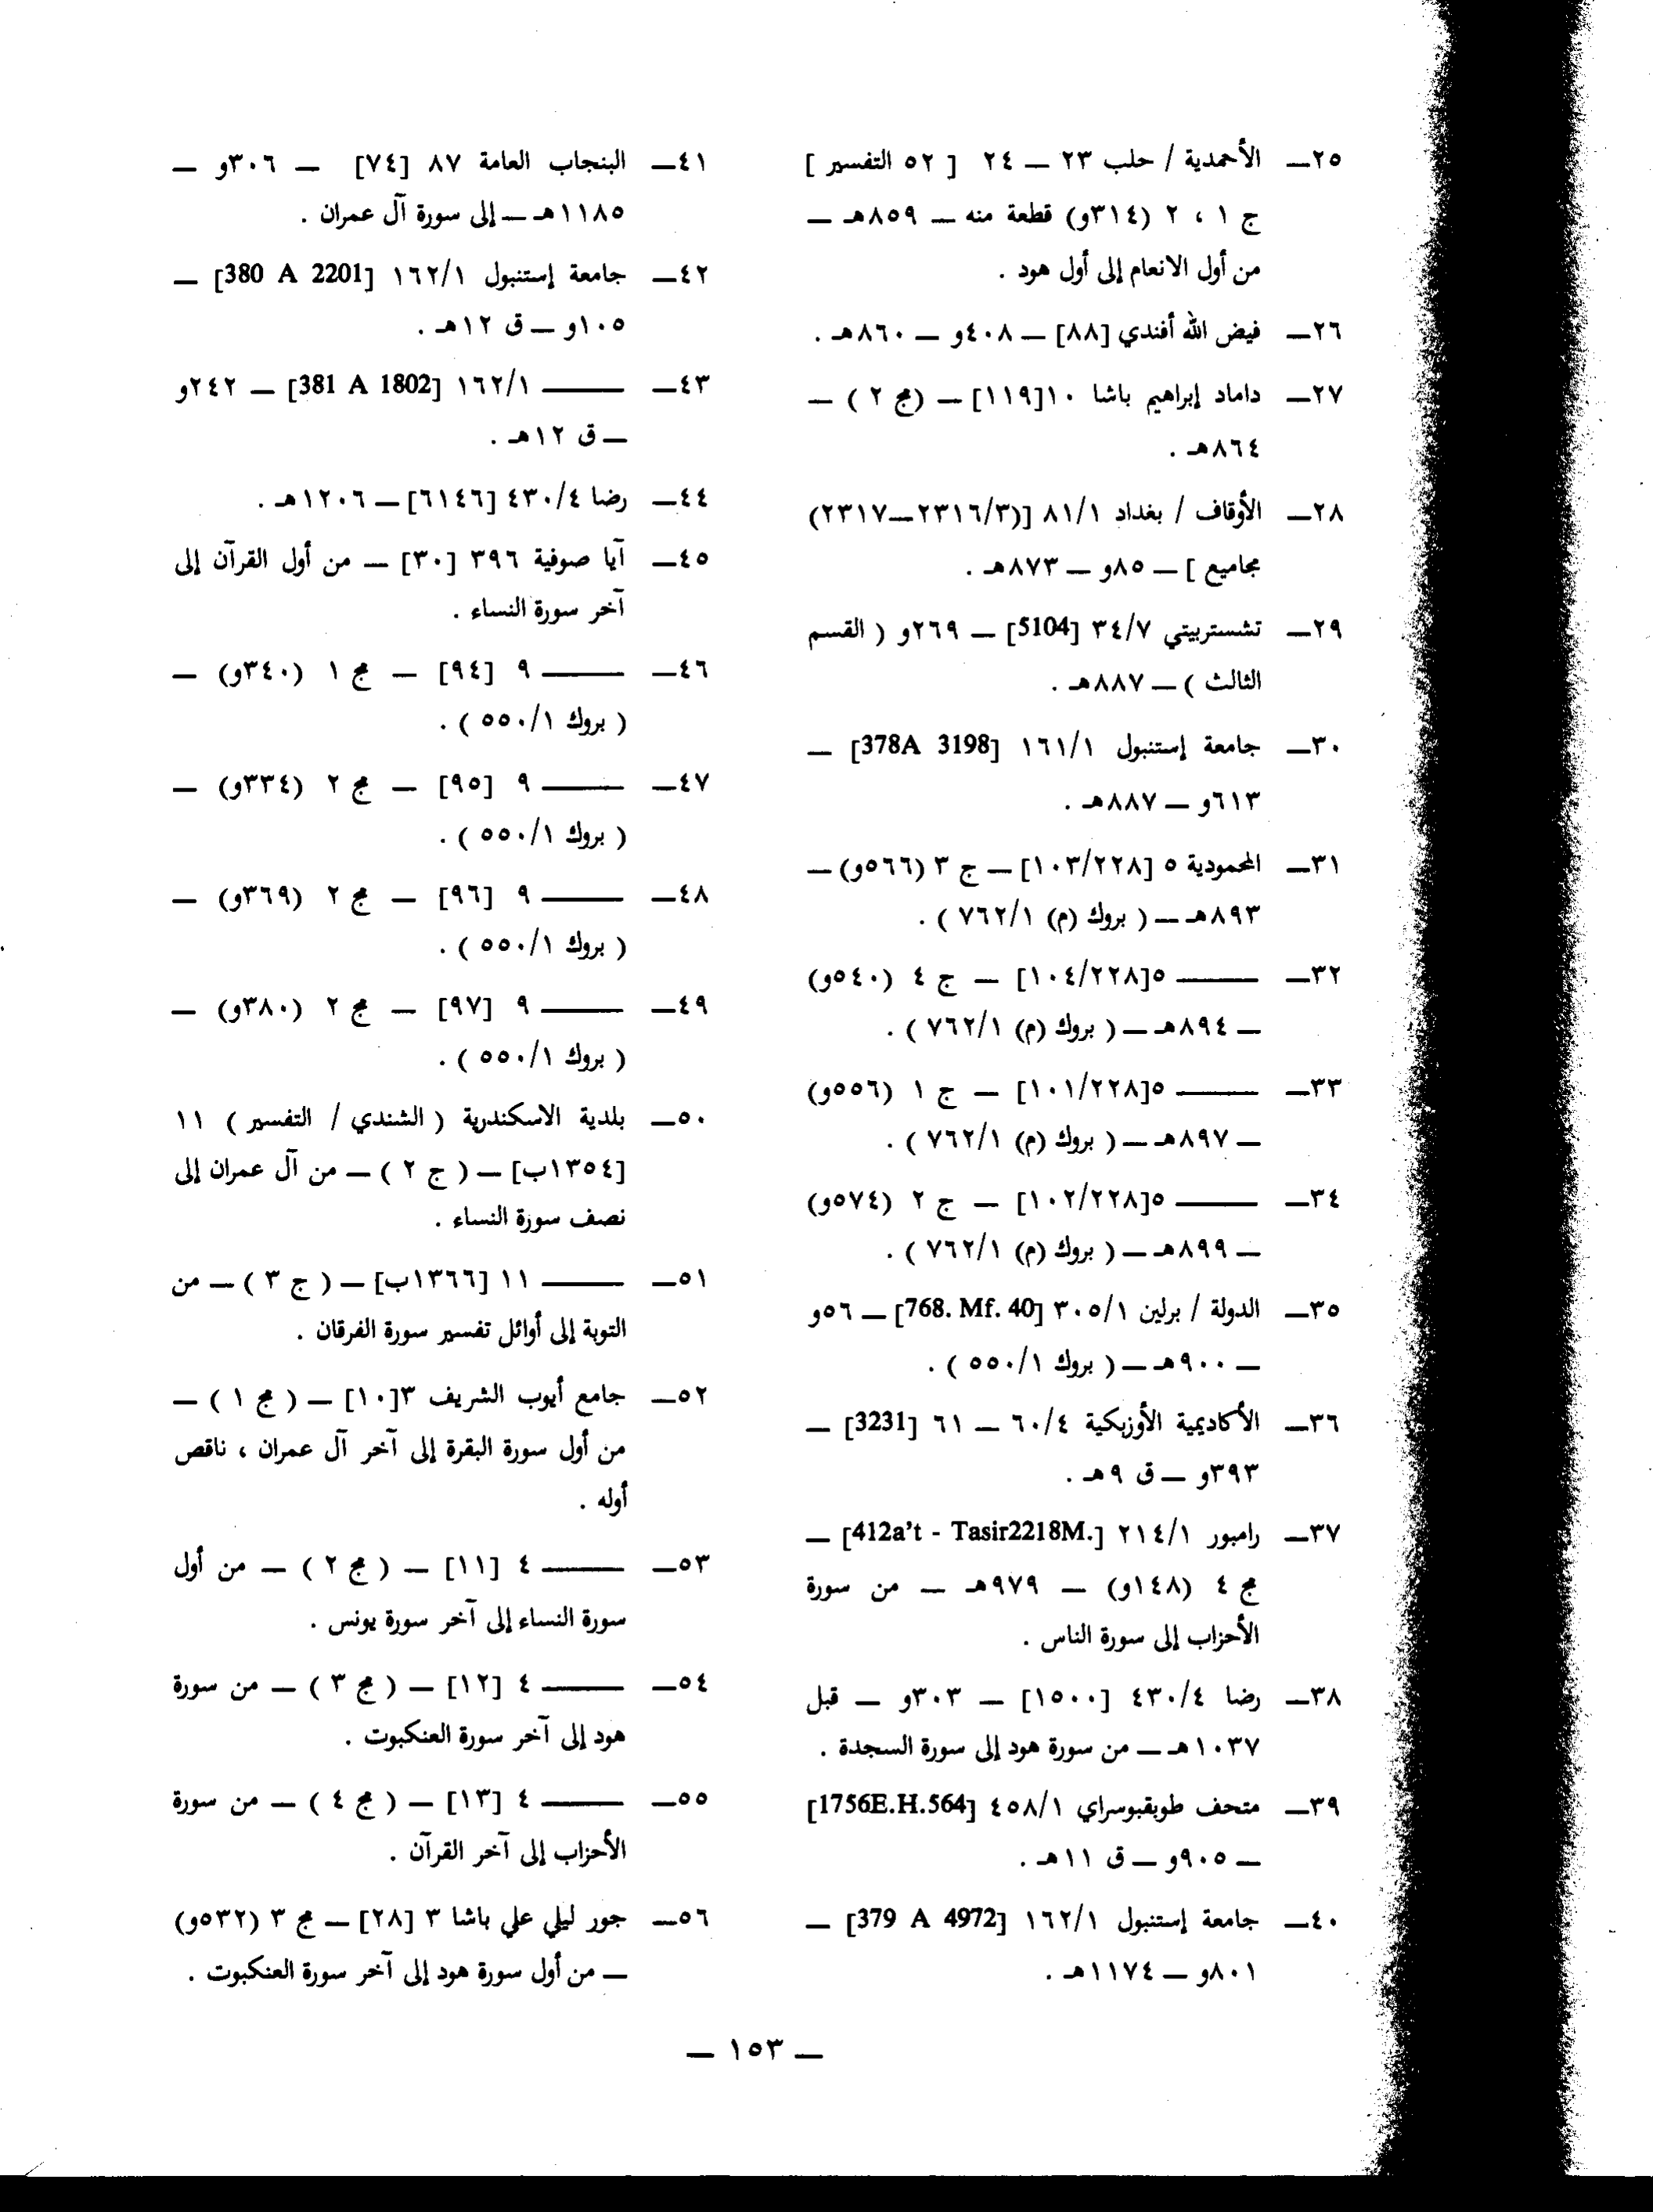 ٢٥ــ الأحمدية / حلب ٢٣ ــ ٢٤ [ ٥٢ التفسير ]
ج ١ ، ٢ (٣١٤و) قطعة منه ــ ٨٥٩هـ ــ
من أول الانعام إلى أول هود .
٢٦ــ فيض الله أفندي [٨٨] ــ ٤٠٨و ــ ٨٦٠هـ .
٢٧ــ داماد إبراهيم باشا ١٠[١١٩] ــ (مج ٢ ) ــ
٨٦٤هـ .
٢٨ــ الأوقاف / بغداد ٨١/١ [(٢٣١٦/٣ــ٢٣١٧)
مجاميع ] ــ ٨٥و ــ ٨٧٣هـ .
٢٩ــ تشستربيتي ٣٤/٧ [5104] ــ ٢٦٩و ( القسم
الثالث ) ــ ٨٨٧هـ .
٣٠ــ جامعة إستنبول ١٦١/١ [378A 3198] ــ
٦١٣و ــ ٨٨٧هـ .
٣١ــ المحمودية ٥ [١٠٣/٢٢٨] ــ ج ٣ (٥٦٦و) ــ
٨٩٣هـ ــ ( بروك (م) ٧٦٢/١ ) .
٣٢ــ ـــــــ ٥[١٠٤/٢٢٨] ــ ج ٤ (٥٤٠و)
ــ ٨٩٤هـ ــ ( بروك (م) ٧٦٢/١ ) .
٣٣ــ ـــــــ ٥[١٠١/٢٢٨] ــ ج ١ (٥٥٦و)
ــ ٨٩٧هـ ــ ( بروك (م) ٧٦٢/١ ) .
٣٤ــ ـــــــ ٥[١٠٢/٢٢٨] ــ ج ٢ (٥٧٤و)
ــ ٨٩٩هـ ــ ( بروك (م) ٧٦٢/١ ) .
٣٥ــ الدولة / برلين ٣٠٥/١ [768. Mf. 40] ــ ٥٦و
ــ ٩٠٠هـ ــ ( بروك ٥٥٠/١ ) .
٣٦ــ الأكاديمية الأوزبكية ٦٠/٤ ــ ٦١ [3231] ــ
٣٩٣و ــ ق ٩هـ .
٣٧ــ رامبور ٢١٤/١ [412a't - Tasir2218M.] ــ
مج ٤ (١٤٨و) ــ ٩٧٩هـ ــ من سورة
الأحزاب إلى سورة الناس .
٣٨ــ رضا ٤٣٠/٤ [١٥٠٠] ــ ٣٠٣و ــ قبل
١٠٣٧هـ ــ من سورة هود إلى سورة السجدة .
٣٩ــ متحف طوبقبوسراي ٤٥٨/١ [1756E.H.564]
ــ ٩٠٥و ــ ق ١١هـ .
٤٠ــ جامعة إستنبول ١٦٢/١ [379 A 4972] ــ
٨٠١و ــ ١١٧٤هـ .
٤١ــ البنجاب العامة ٨٧ [٧٤] ــ ٣٠٦و ــ
١١٨٥هـ ــ إلى سورة آل عمران .
٤٢ــ جامعة إستنبول ١٦٢/١ [380 A 2201] ــ
١٠٥و ــ ق ١٢هـ .
٤٣ــ ـــــــ ١٦٢/١ [381 A 1802] ــ ٢٤٢و
ــ ق ١٢هـ .
٤٤ــ رضا ٤٣٠/٤ [٦١٤٦] ــ ١٢٠٦هـ .
٤٥ــ آيا صوفية ٣٩٦ [٣٠] ــ من أول القرآن إلى
آخر سورة النساء .
٤٦ــ ـــــــ ٩ [٩٤] ــ مج ١ (٣٤٠و) ــ
( بروك ٥٥٠/١ ) .
٤٧ــ ـــــــ ٩ [٩٥] ــ مج ٢ (٣٣٤و) ــ
( بروك ٥٥٠/١ ) .
٤٨ــ ـــــــ ٩ [٩٦] ــ مج ٢ (٣٦٩و) ــ
( بروك ٥٥٠/١ ) .
٤٩ــ ـــــــ ٩ [٩٧] ــ مج ٢ (٣٨٠و) ــ
( بروك ٥٥٠/١ ) .
٥٠ــ بلدية الاسكندرية ( الشندي / التفسير ) ١١
[١٣٥٤ب] ــ ( ج ٢ ) ــ من آل عمران إلى
نصف سورة النساء .
٥١ــ ـــــــ ١١ [١٣٦٦ب] ــ ( ج ٣ ) ــ من
التوبة إلى أوائل تفسير سورة الفرقان .
٥٢ــ جامع أيوب الشريف ٣[١٠] ــ ( مج ١ ) ــ
من أول سورة البقرة إلى آخر آل عمران ، ناقص
أوله .
٥٣ــ ـــــــ ٤ [١١] ــ ( مج ٢ ) ــ من أول
سورة النساء إلى آخر سورة يونس .
٥٤ــ ـــــــ ٤ [١٢] ــ ( مج ٣ ) ــ من سورة
هود إلى آخر سورة العنكبوت .
٥٥ــ ـــــــ ٤ [١٣] ــ ( مج ٤ ) ــ من سورة
الأحزاب إلى آخر القرآن .
٥٦ــ جور ليلي علي باشا ٣ [٢٨] ــ مج ٣ (٥٣٢و)
ــ من أول سورة هود إلى آخر سورة العنكبوت .
ــ ١٥٣ ــ